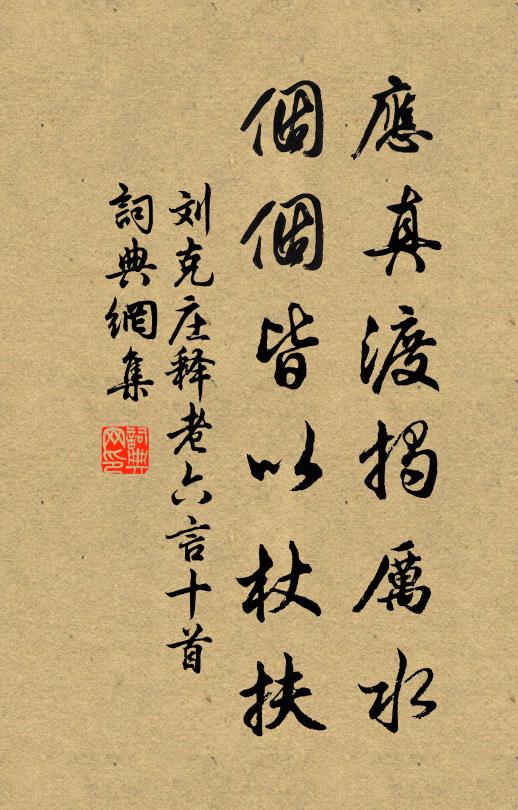 應真渡揭厲水
個個皆以杖扶
刘克庄释老六言十首
詞典網集
詞典
网印